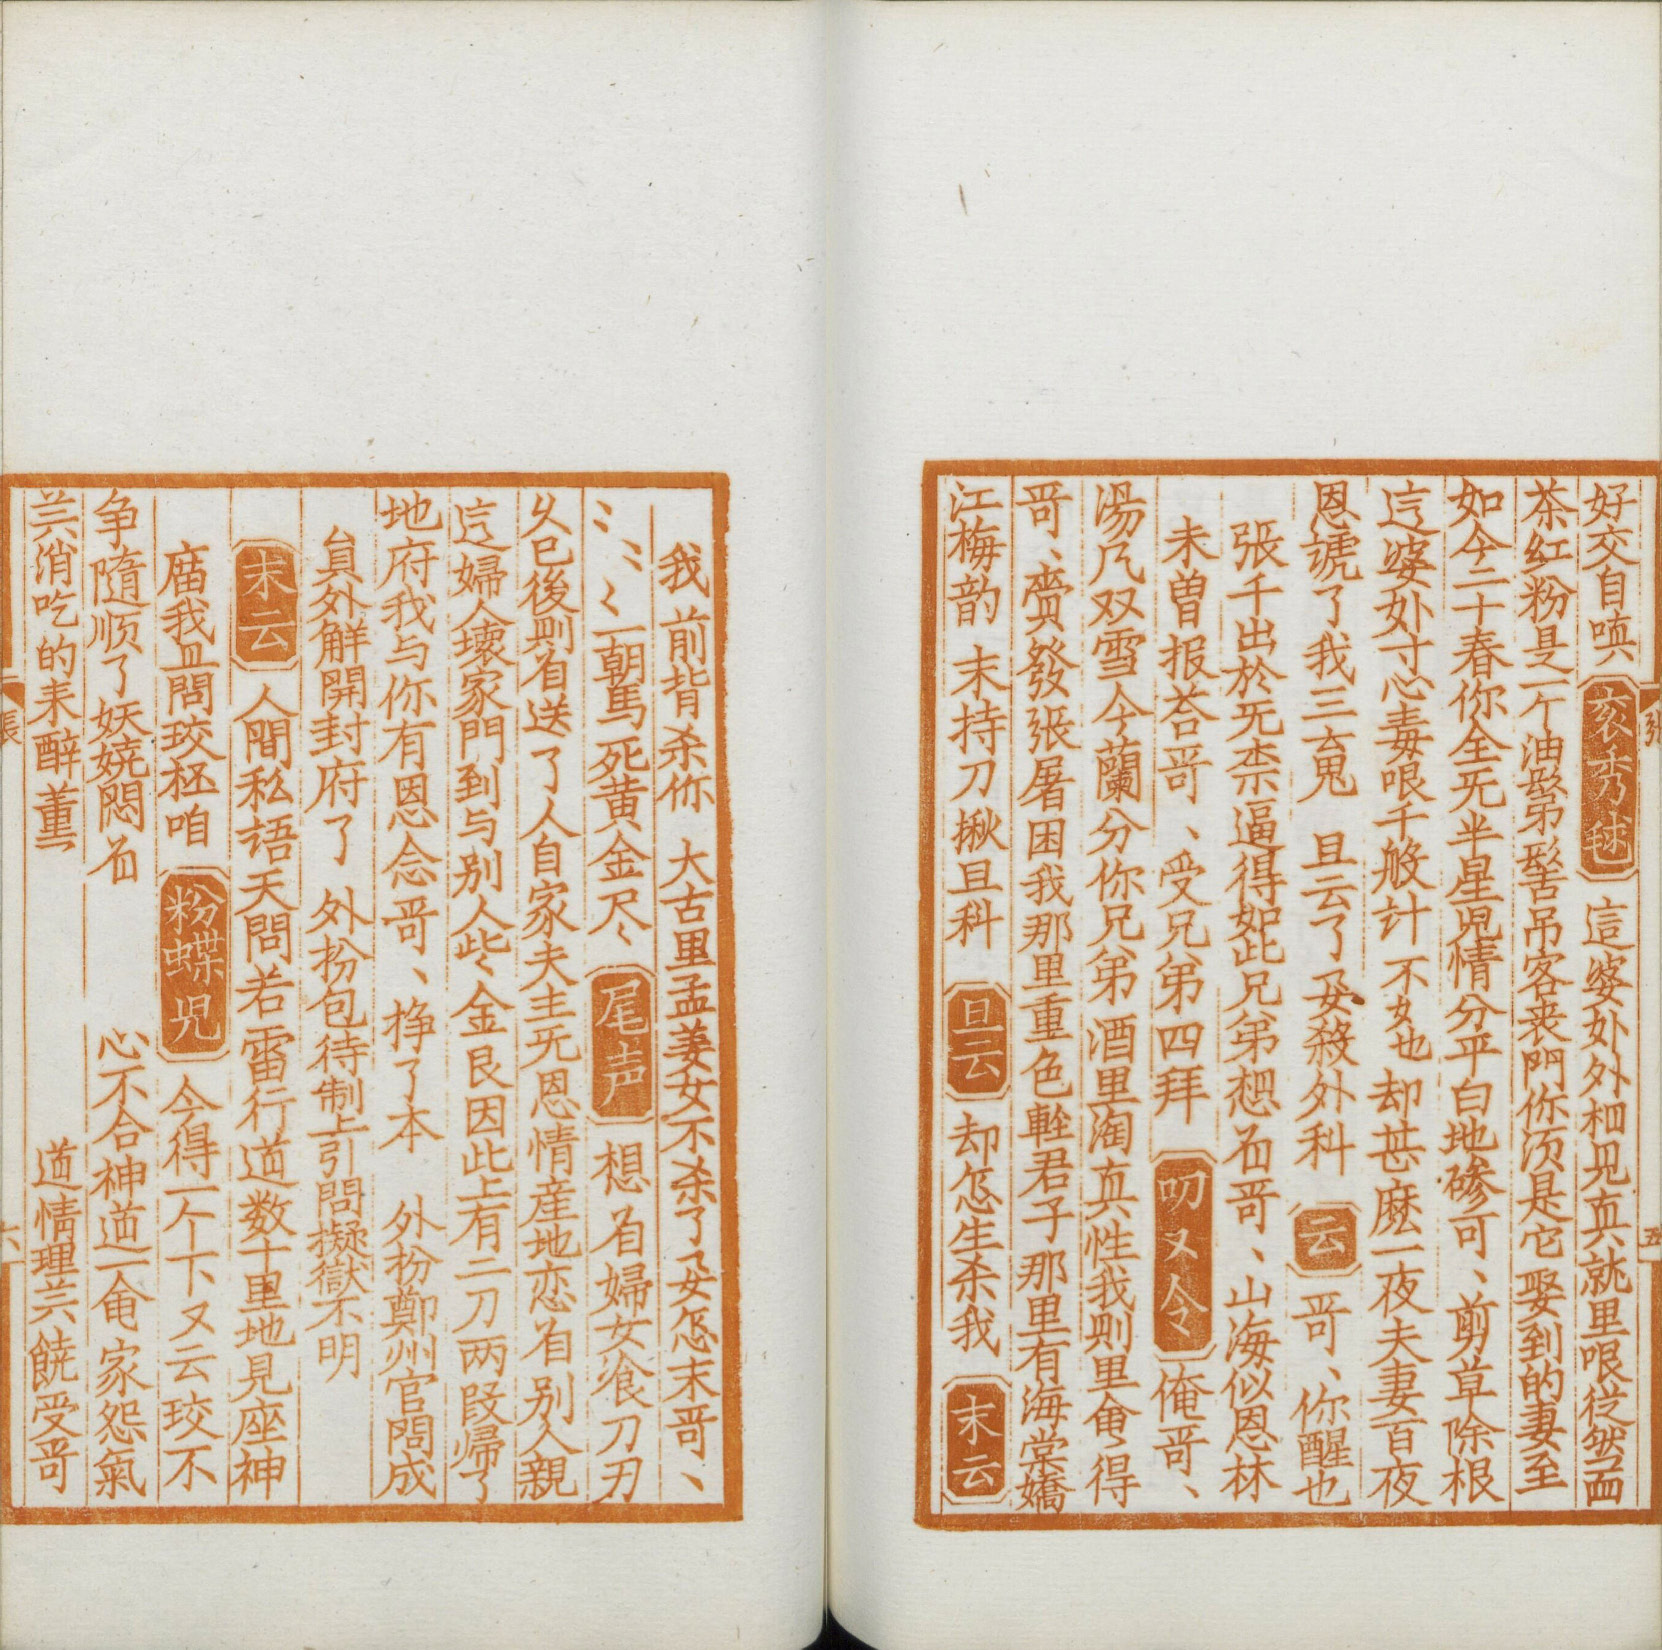 好交自嗔 衮秀毬 這婆处外相見真就里哏従然面
茶红粉是一个油髢第髻吊客丧門你须是它娶到的妻至
如今二十春你全无半星児情分平白地磣可、剪草除根
这婆处寸心毒哏千般计不𡚸也却甚麽一夜夫妻百夜
恩諕了我三魂 旦云了 殺外科 云 哥、你醒也
張千出於无柰逼得如此兄弟想右哥、山海似恩林
未曽报荅哥、受兄弟四拜 叨叨令 俺哥、
湯风双雪今蘭分你兄弟酒里淘真性我則里 得
哥、賫發张屠困我那里重色輕君子那里有海棠嬌
江梅韵 末持刀揪旦科 旦云 却怎生杀我 末云
我前背杀你 大古里孟姜女不杀了 怎末哥、
一朝馬死黄金尽 尾声 想着婦女飡刀刃
久已後則着送了人自家夫主无恩情産地恋着别人親
这婦人壊家門到与别人些金艮因此上有二刀两叚帰了
地府我与你有恩念哥、挣了本 外扮鄭州官問成
員外解開封府了 外扮包待制上引問擬獄不明
末云 人間私语天問若雷行道数十里地見座神
庙我且問珓杯咱 粉蝶児 今得一个下下又云珓不
争随顺了妖娆悶着 心不合神道一 家怨氣
兰消吃的来醉薫 道情理兰饒受哥
張 五
張 六